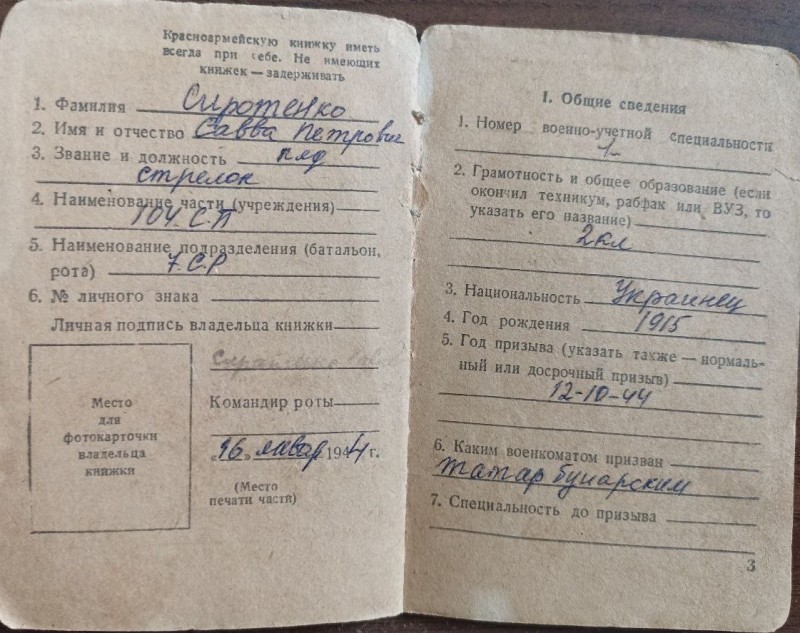 Красноармейскую книжку иметь
всегда при себе. Не имеющих
книжек — задерживать
1. Фамилия Сиротенко
2. Имя и отчество Савва Петрович
3. Звание и должность кяд
стрелок
4. Наименование части (учреждения)
104 С.П
5. Наименование подразделения (батальон,
рота) 7 С.Р
6. № личного знака
Личная подпись владельца книжки
Место
для
фотокарточки
владельца
книжки
Командир роты
„16" январ 1944 г.
(Место
печати части)
I. Общие сведения
1. Номер военно-учетной специальности
1-
2. Грамотность и общее образование (если
окончил техникум, рабфак или ВУЗ, то
указать его название)
2 кл
3. Национальность Украинец
4. Год рождения 1915
5. Год призыва (указать также — нормаль-
ный или досрочный призыв)
12-10-44
6. Каким военкоматом призван
Татарбунарским
7. Специальность до призыва
3